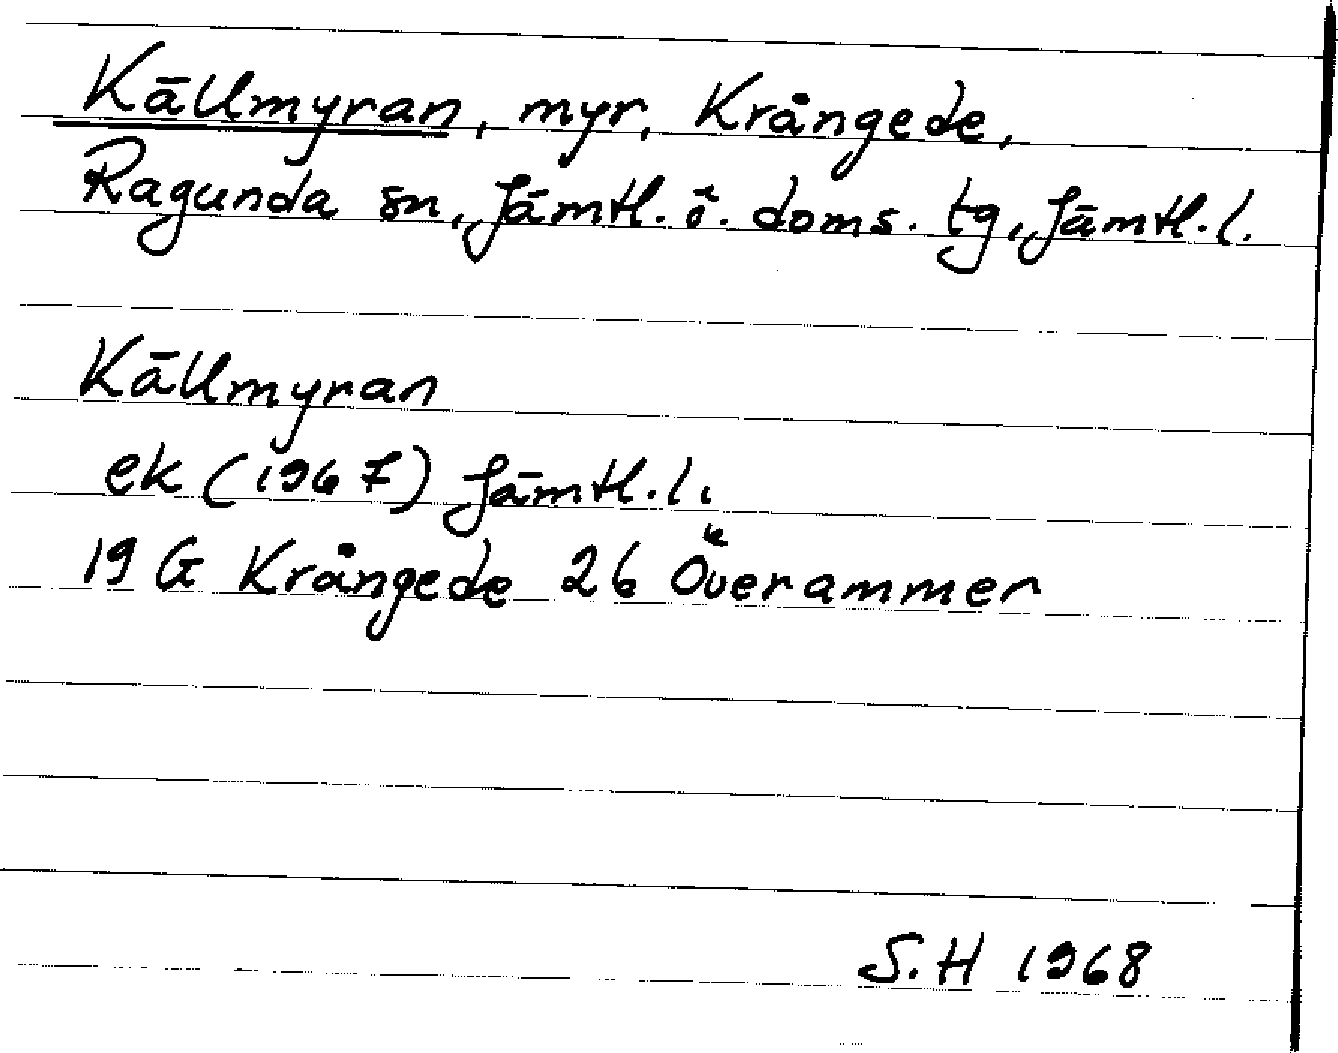 Källmyran, myr, Krångede,
Ragunda sn, Jämtl. ö. doms. tg, Jämtl. l.
Källmyran
ek (1967) Jämtl. l.
19 G Krångede 26 Överammer
S.H 1968